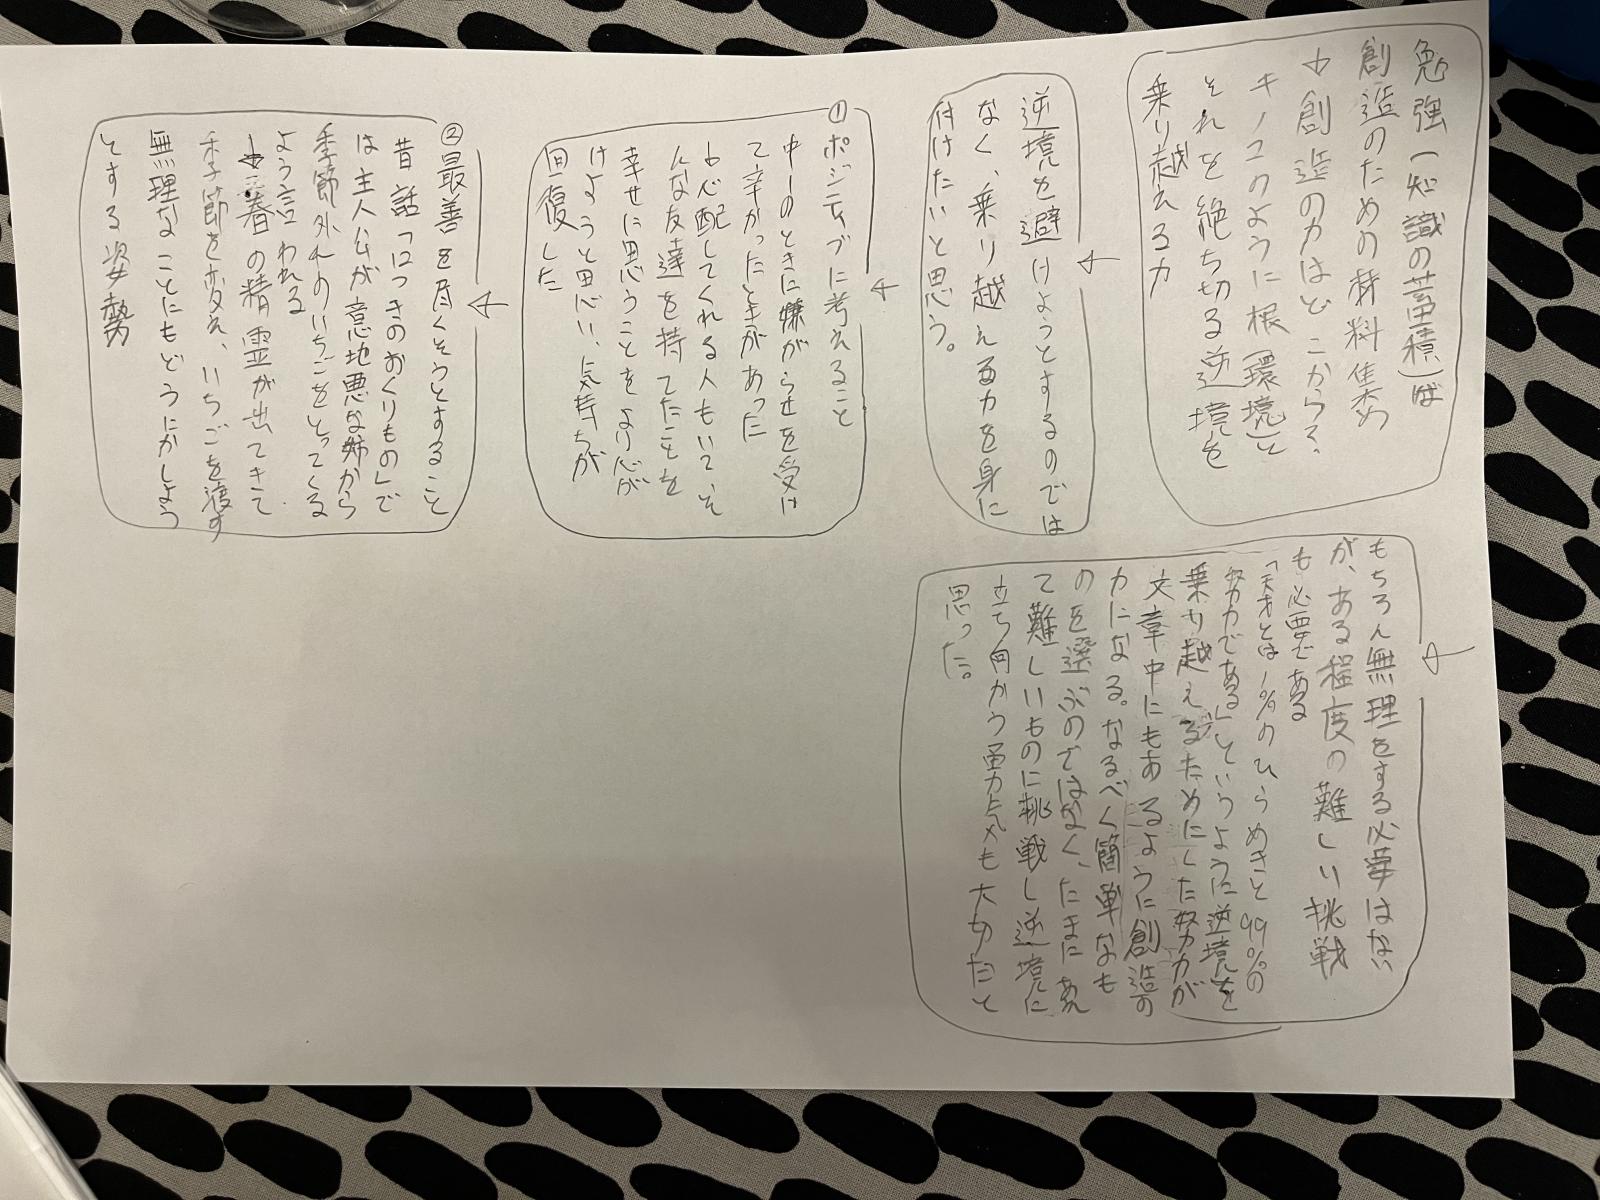 勉強(知識の蓄積)は
創造のための材料集め
↓創造の力はどこから?
キノコのように根(環境)と
それを絶ち切る逆境を
乗り越える力
逆境を避けようとするのでは
なく、乗り越える力を身に
付けたいと思う。
①ポジティブに考えること
中一のときに嫌がらせを受け
て辛かったときがあった
↓心配してくれる人もいて、そ
んな友達を持てたことを
幸せに思うことをより心が
けようと思い、気持ちが
回復した
②最善を尽くそうとすること
昔話「12つきのおくりもの」で
は主人公が意地悪な姉から
季節外れのいちごをとってくる
よう言われる
↓春の精霊が出てきて
季節を変え、いちごを渡す
無理なことにもどうにかしよう
とする姿勢
もちろん無理をする必要はない
が、ある程度の難しい挑戦
も必要である
「天才とは1%のひらめきと99%の
努力である」というように逆境を
乗り越えるためにした努力が
文章中にもあるように創造の
力になる。なるべく簡単なも
のを選ぶのではなく、たまにあえ
て難しいものに挑戦し逆境に
立ち向かう勇気も大切だと
思った。